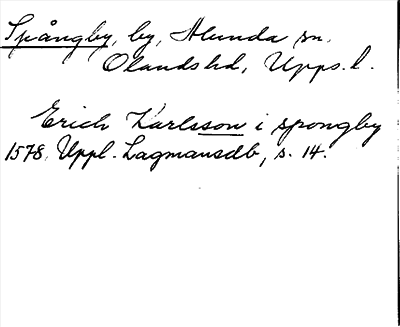 Spångby, by, Alunda sn.
Olands hd, Upps. l.
Erich Karlsson i spongby
1578. Uppl. Lagmansdb, s. 14.